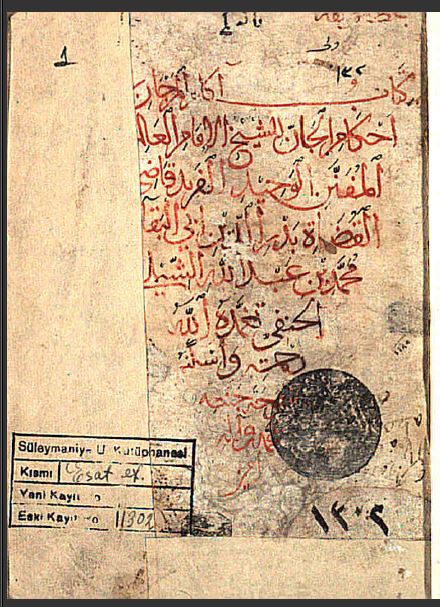 1
١٣٢
كتاب آكام المرجان
احكام الجان الشيخ الامام العالم
المفنن الوحيد الفريد قاضي
القضاة بدر الدين ابي البقا
محمد بن عبد الله الشبلي
الحنفي تغمده الله
برحمته واسكنه
جنته
Süleymaniye U. Kütüphanesi
Kısmı Esat ef.
Yeni Kayıt No
Eski Kayıt No
١٣٠٢